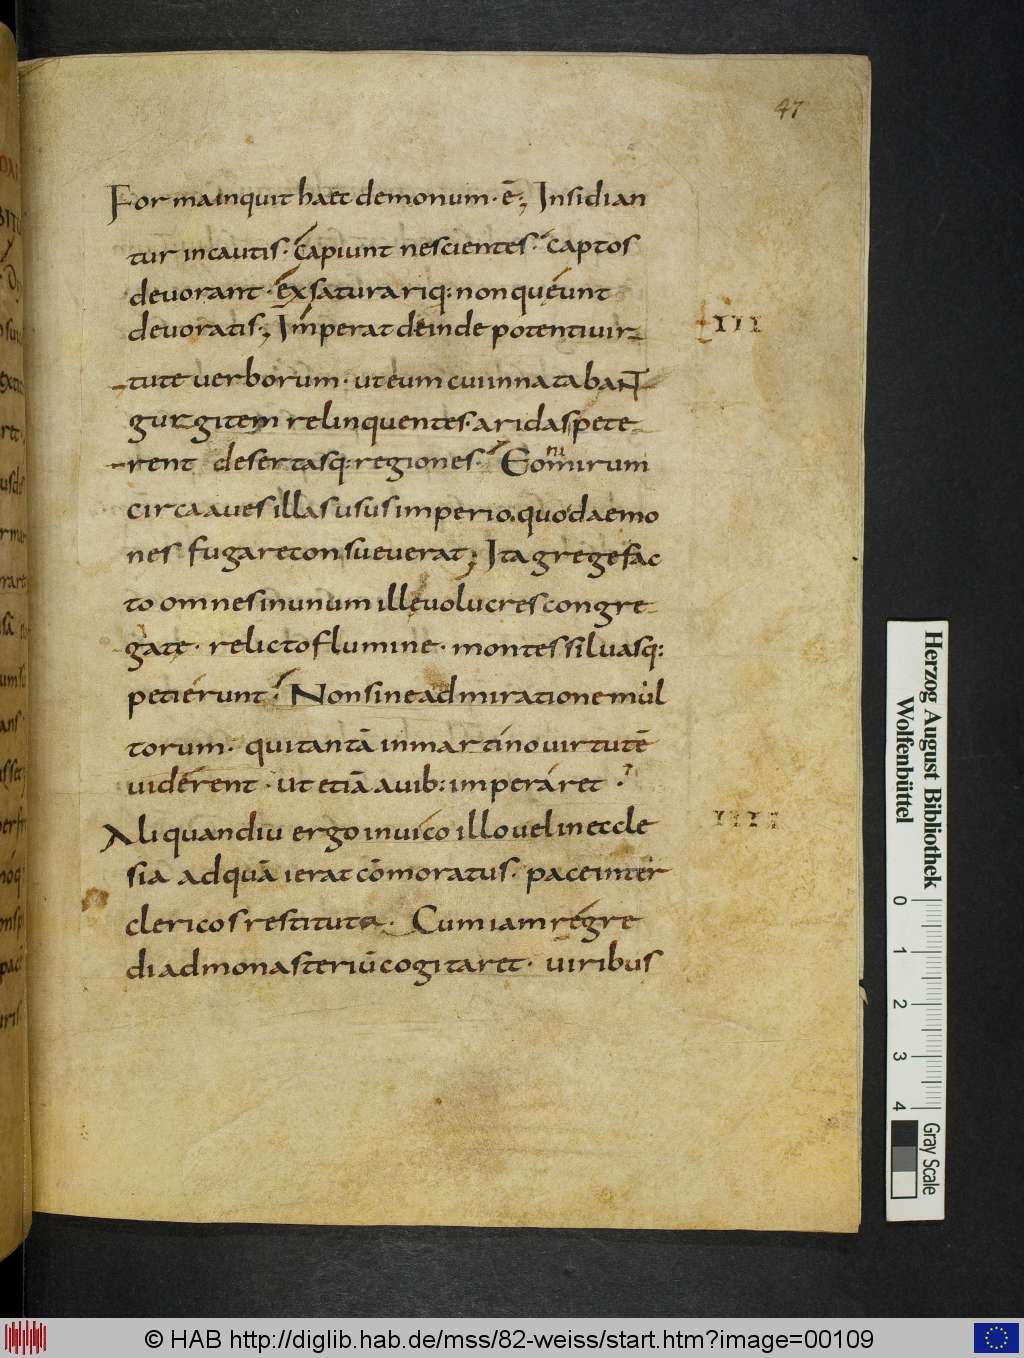 47
Forma inquit haec demonum · ē; Insidian
tur incautis · capiunt nescientes · captos
devorant · exsaturariq: non queunt
devoratis; Imperat deinde potenti vir-
III
tute verborum · ut eum cui innatabaNT
gurgitem relinquentes · aridas pete-
rent desertasq: regiones · Eo nimirum
circa aves illas usus imperio. quo daemo
nes fugare consueverat; Ita grege fac
to omnes in unum illę volucres congre-
gatę · relicto flumine · montes silvasq:
petierunt · Non sine admiratione mul
torum · qui tantā in martino virtutē
viderent · ut etiā avib: imperaret ·
Aliquandiu ergo in vico illo vel in eccle
IIII
sia ad quā ierat cōmoratus · pace inter
clericos restituta · Cum iam regre
di ad monasteriū cogitaret · viribus
Herzog August Bibliothek
Wolfenbüttel
0 1 2 3 4
Gray Scale
© HAB http://diglib.hab.de/mss/82-weiss/start.htm?image=00109